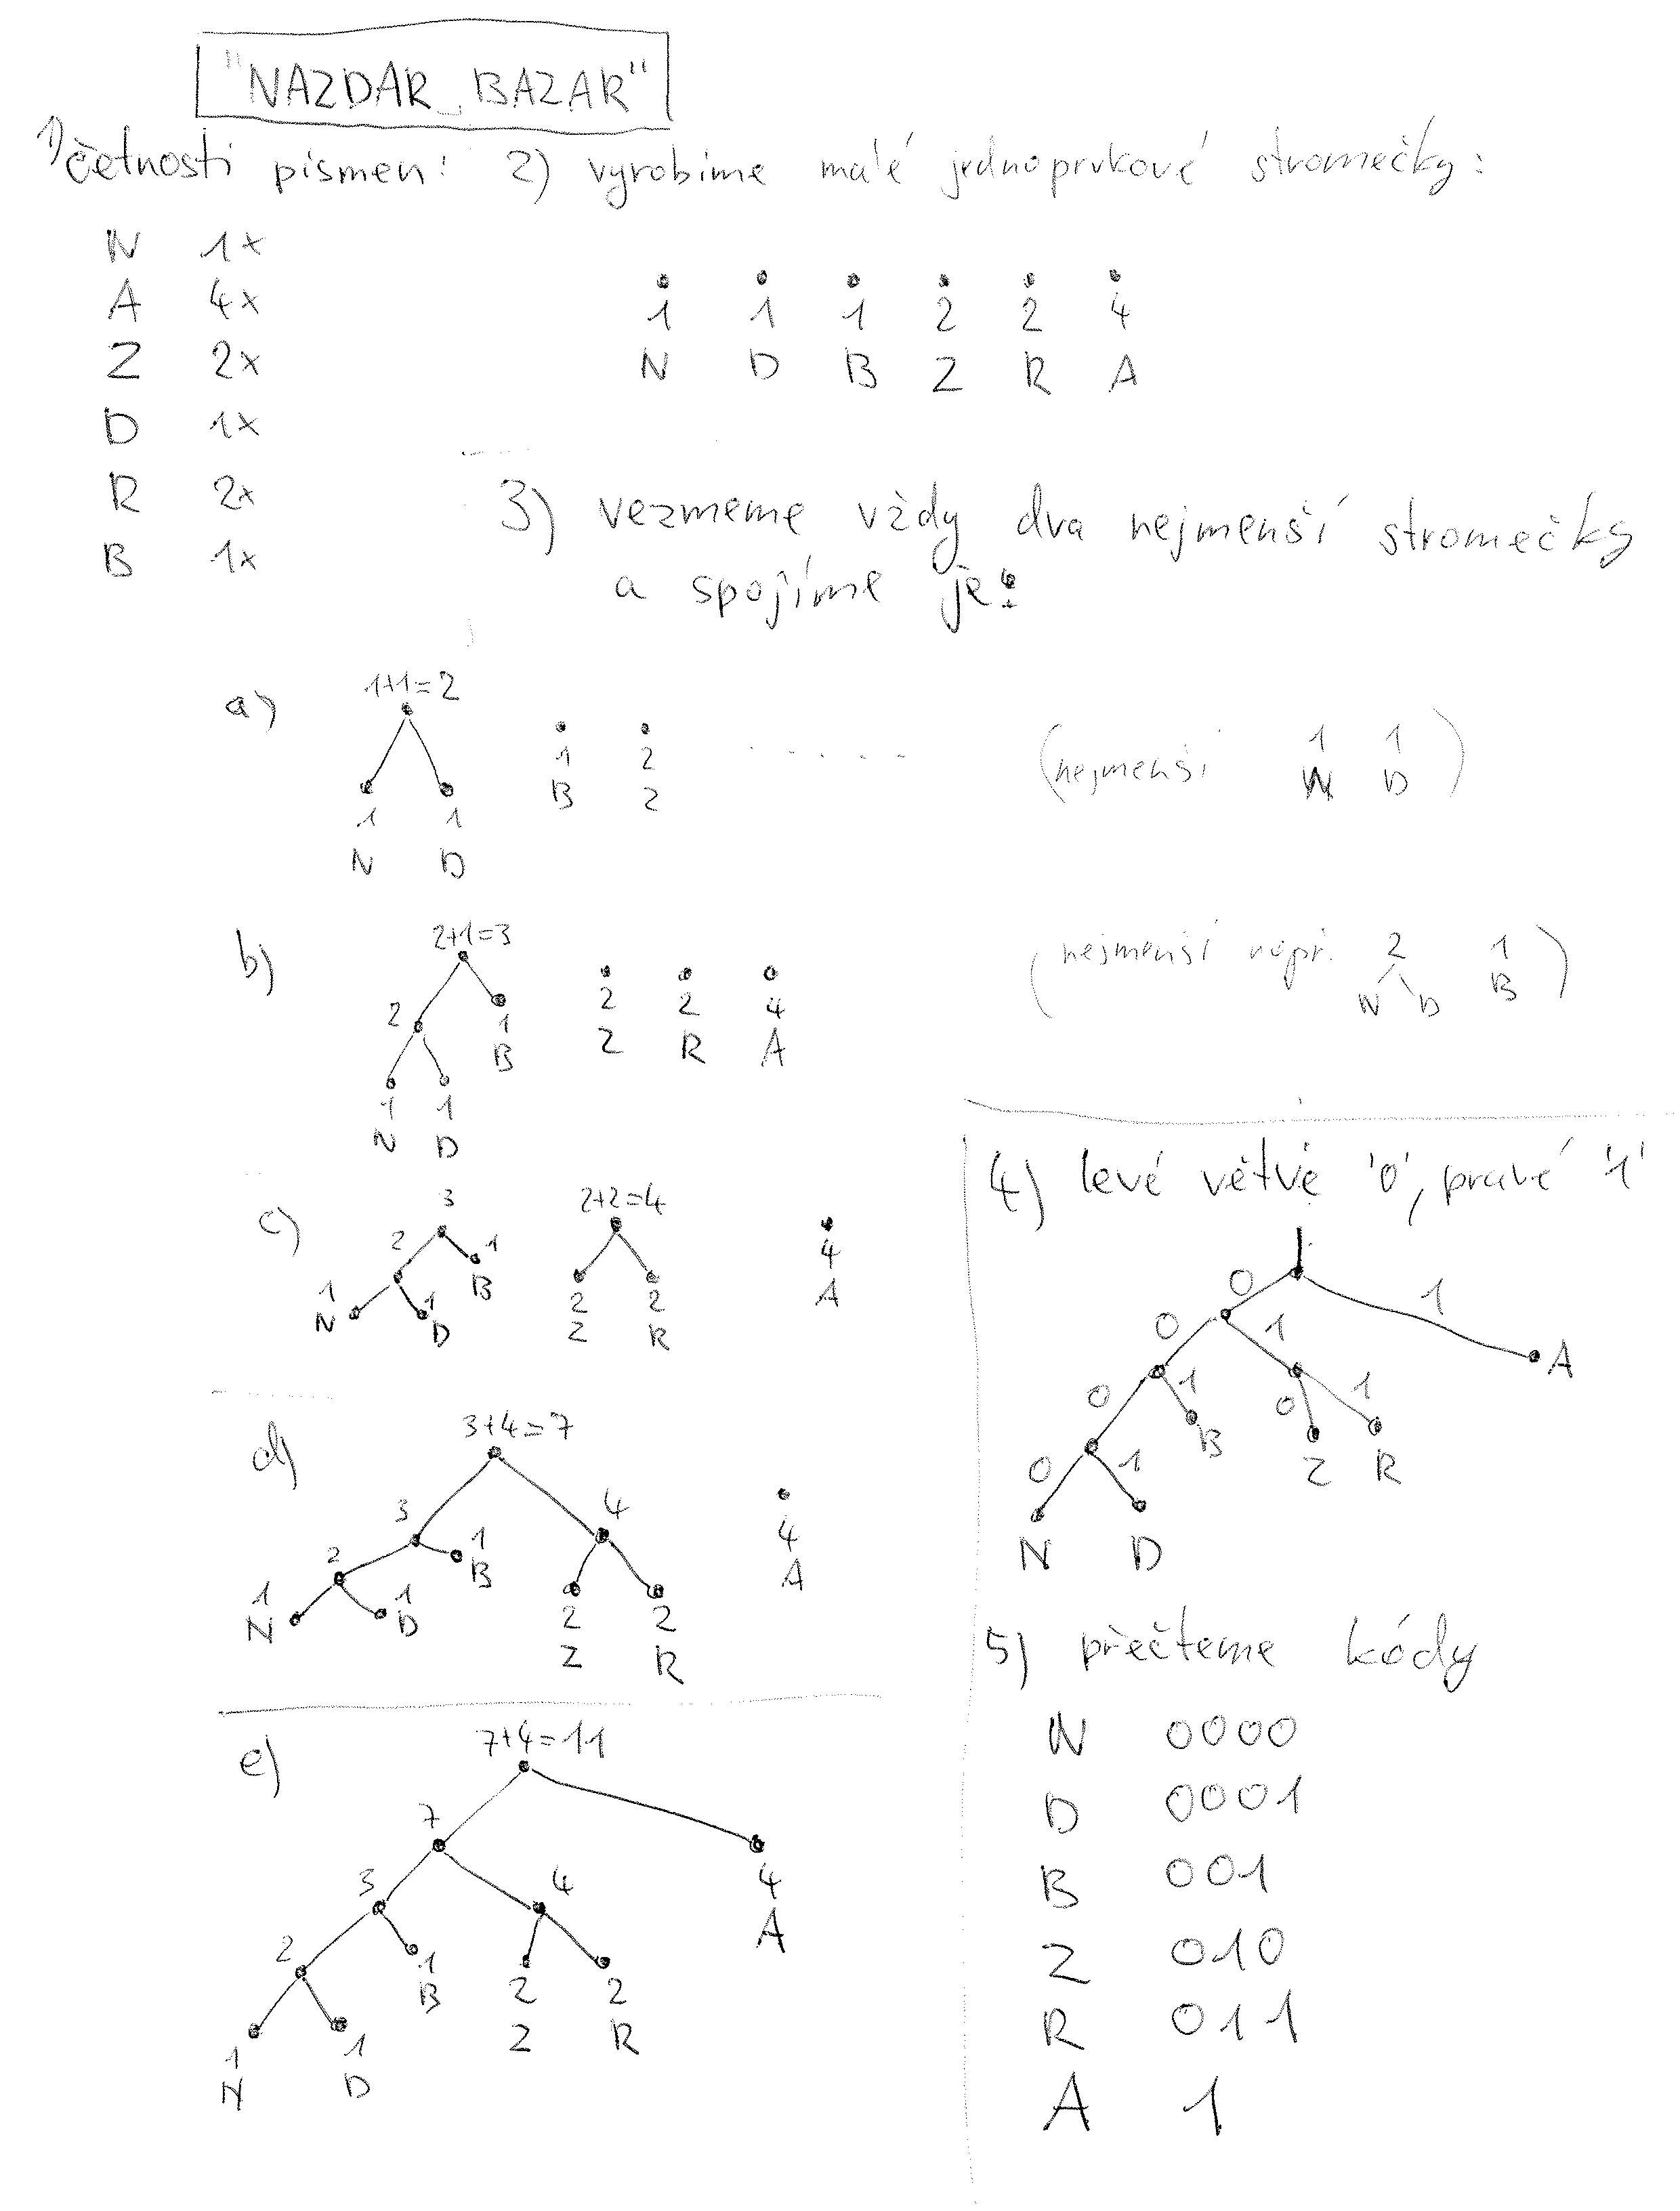 "NAZDAR_BAZAR"
1) četnosti písmen:
N 1x
A 4x
Z 2x
D 1x
R 2x
B 1x
2) vyrobíme malé jednoprvkové stromečky:
1 1 1 2 2 4
N D B Z R A
3) vezmeme vždy dva nejmenší stromečky
a spojíme je:
a) 1+1=2
1 2
B Z
1 1
N D
(nejmenší 1 1
N D)
b) 2+1=3
2 1 2 2 4
B Z R A
1 1
N D
(nejmenší např. 2 1
N D B)
c) 3 2+2=4
2 1 4
B A
1 1 2 2
N D Z R
d) 3+4=7
3 4
2 1 4
B A
1 1 2 2
N D Z R
e) 7+4=11
7
3 4 4
A
2 1 2 2
B Z R
1 1
N D
4) levé větvě '0', pravé '1'
0 1
0 1 A
0 1 0 1
B Z R
0 1
N D
5) přečteme kódy
N 0000
D 0001
B 001
Z 010
R 011
A 1